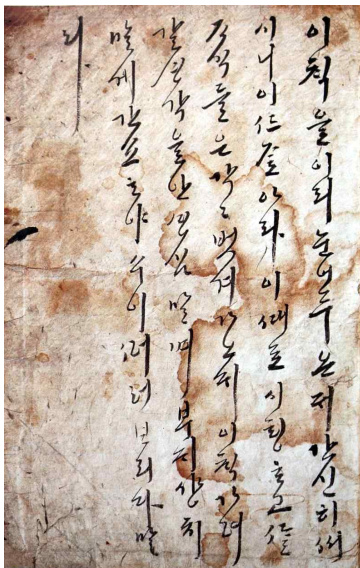 이 ᄎᆡᆨ을 이리 눈 어두온ᄃᆡ 간신히 써
시니 이 ᄯᅳᆺ 아라 이대로 시ᄒᆡᆼᄒᆞ고 ᄯᆞᆯ
ᄌᆞ식들은 각각 벗겨 가오ᄃᆡ 이 ᄎᆡᆨ 가뎌
갈 ᄉᆡᆼ각을안 ᄉᆡᆼ심 말며 부ᄃᆡ 샹치
말게 간쇼ᄒᆞ야 수이 ᄯᅥ러 ᄇᆞ리다 말
라